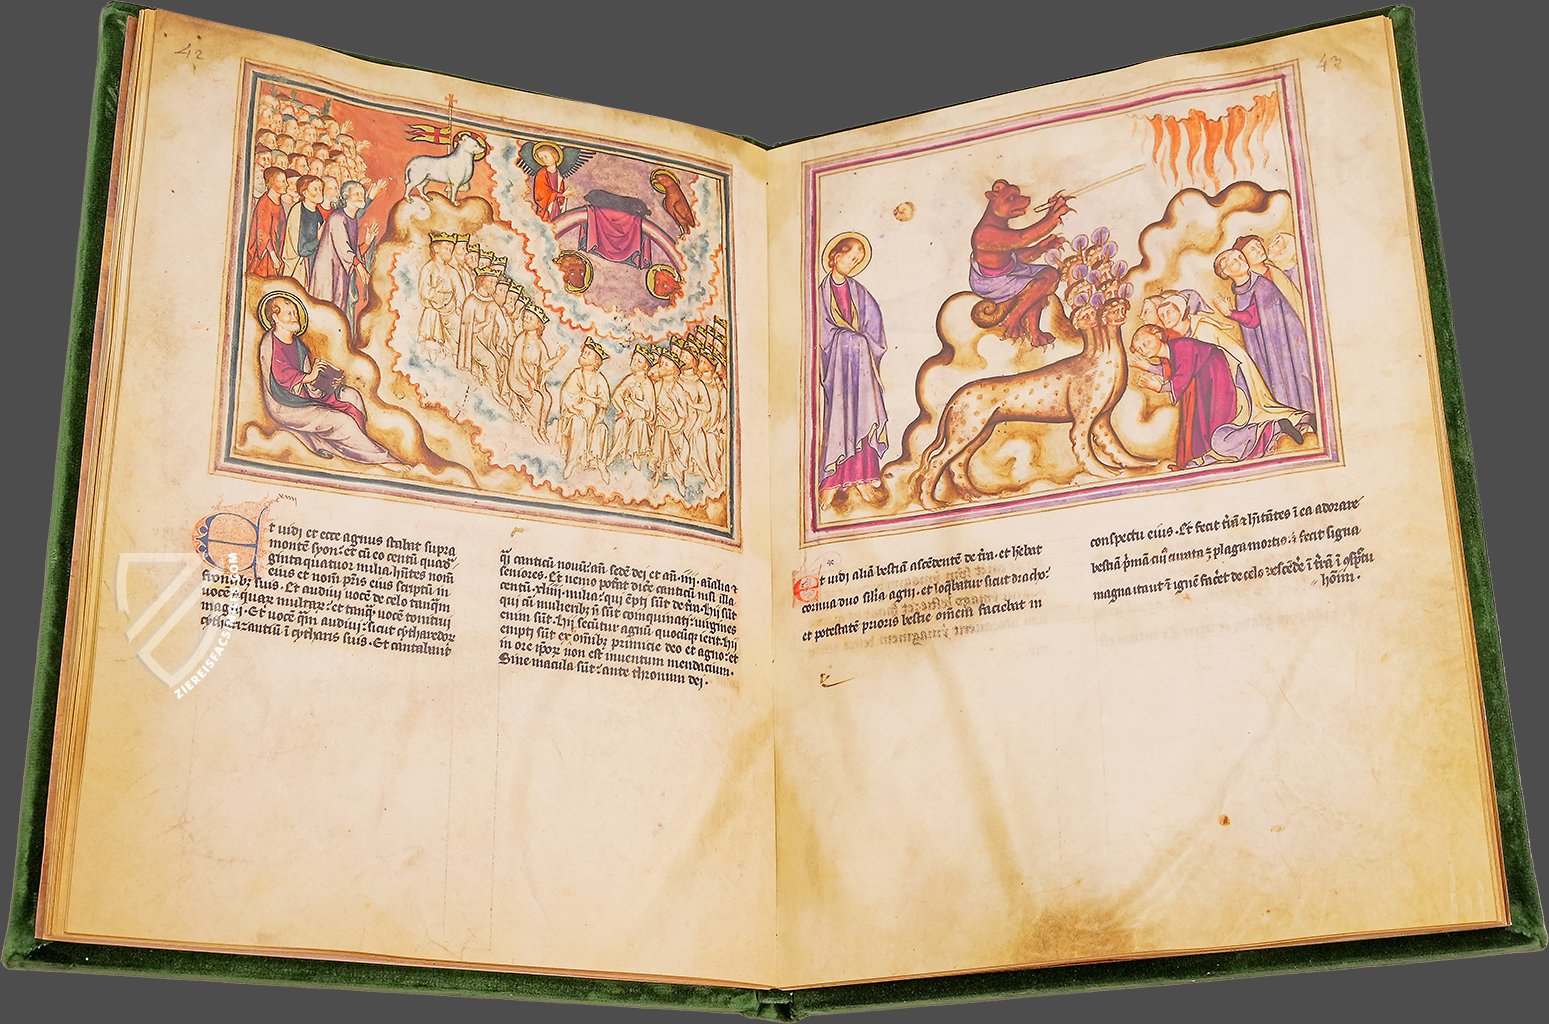 42
xiiii
Et uidi et ecce agnus stabat supra
montē syon: et cū eo centū quadra
ginta quatuor milia: hn̄tes nom̄
eius et nom̄ pr̄is eius sc̄ptū in
frontibꝫ suis. Et audiui uocē de celo tanq̄m
uocē aquar̄ multar̄: et tanq̄ uocē tonitrui
magni. Et uocē q̄m audiui: sicut cytharedor̄
cytharizantiū ī cytharis suis. Et cantabant
q̄i canticū nouū: an̄ sedē dei et an̄ .iiii. aīalia ⁊
seniores. Et nemo pot̄at dic̄e canticū nisi illa
centū .xliiii. milia: qui ēpti sūt de t̄ra. hii sūt
qui cū mulieribꝫ n̄ sūt coinquinati: uirgines
enim sūt. hii secūtur agnū quocūqꝫ ierit. hii
empti sūt ex om̄ibꝫ primicie deo et agno: et
in ore ip̄or̄ non est inuentum mendacium.
Sine macula sūt: ante thronum dei.
43
Et uidi aliā bestiā ascēdentē de t̄ra. et h̄ebat
cornua duo sil̄ia agni. et loq̄batur sicut draco.
et potestatē prioris bestie om̄em faciebat in
conspectu eius. Et fecit t̄rā ⁊ hītātes ī ea adorare
bestiā p̄mā cuiꝰ curata ē plaga mortis. ⁊ fecit signa
magna ut aut̄ ī ignē fac̄et de celo descēdē ī t̄rā ī ōspc̄tu
hōīm.
ZIEREISFACSIMILES.COM